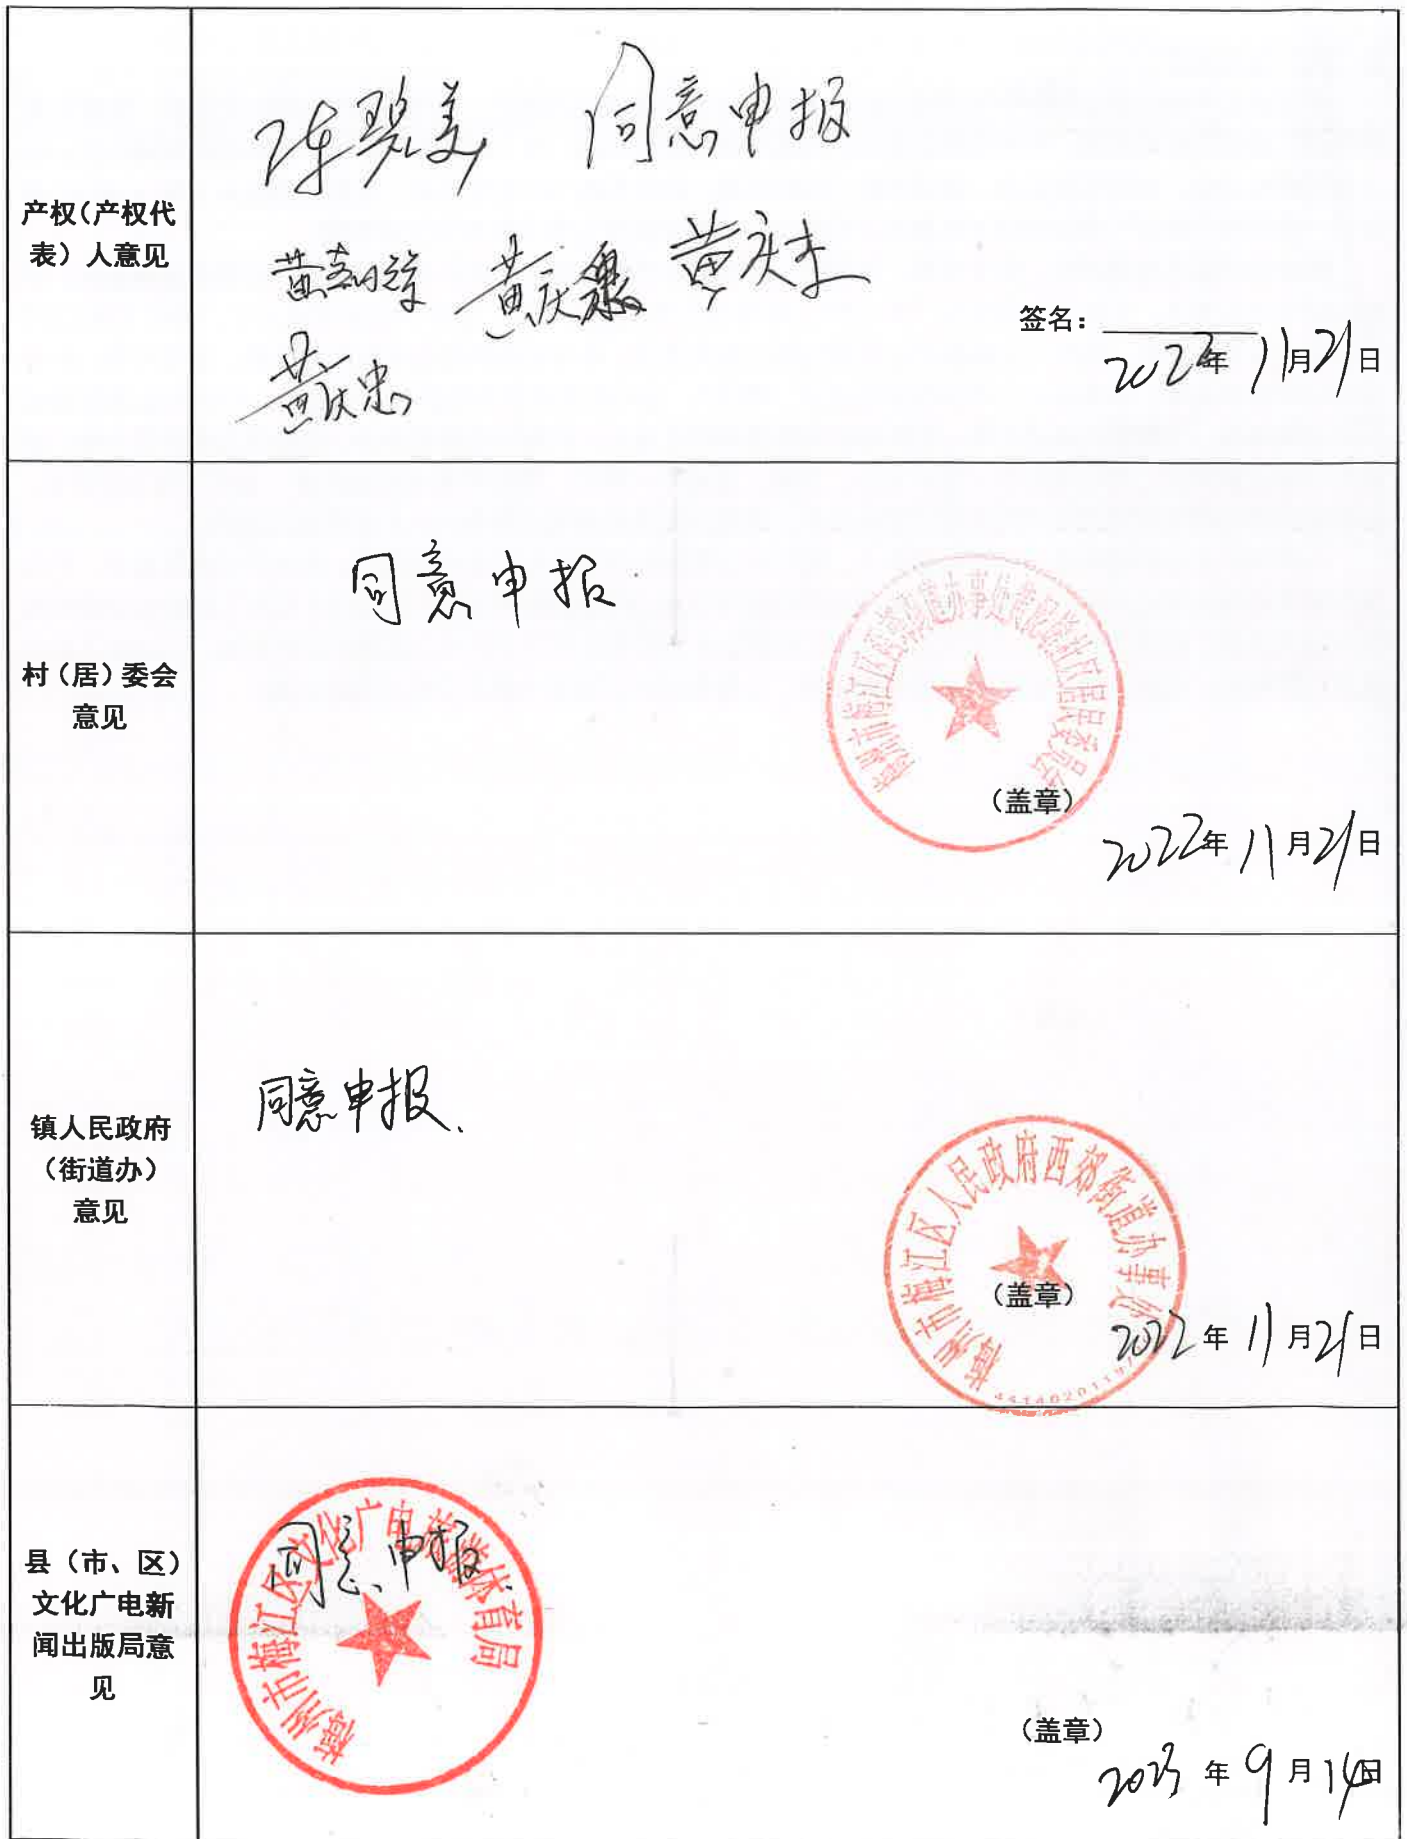 产权（产权代
表）人意见
陈碧美 同意申报
黄庆惠 黄庆杰
黄庆忠
签名：
2022年11月21日
村（居）委会
意见
同意申报
梅州市梅江区西郊街道办事处黄泥墩社区居民委员会
（盖章）
2022年11月21日
镇人民政府
（街道办）
意见
同意申报、
梅州市梅江区人民政府西郊街道办事处
（盖章）
2022年11月21日
县（市、区）
文化广电新
闻出版局意
见
同意申报
梅州市梅江区文化广电旅游体育局
（盖章）
2023年9月14日